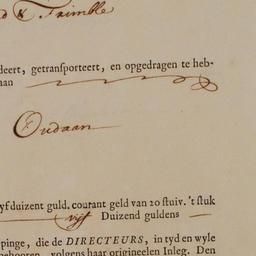 d & Trimble
deert, getransporteert, en opgedragen te heb-
aan
Oudaan
yf duizent guld. courant geld van 20 stuiv. 't stuk
vyf Duizend guldens
pinge, die de DIRECTEURS, in tyd en wyle
behooren, volgens haar origineelen Inleg. Den